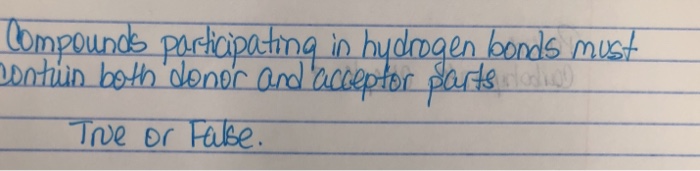 Compounds participating in hydrogen bonds must
contain both donor and acceptor parts
True or False.